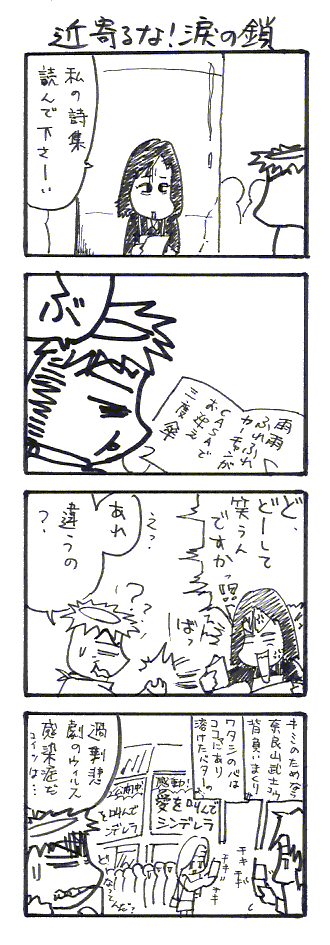 近寄るな！涙の鎖
私の詩集
読んで下さーい
ぶ
雨雨
ふれふれ
カーチャンが
CASAで
お迎え
三度傘
ど、
どーして
笑うん
ですかっ!!?
ばっ
えっ？
あれ
違うの
？
？？
キミのためなら
奈良山武士
背負いまくり
ワタシの心は
ココにあり
溶けたバターッ
感動！
愛を叫んで
シンデレラ
を叫んで
ンデレラ
チキ
チキ
過剰悲
劇のウィルス
感染症だ
コイツは…